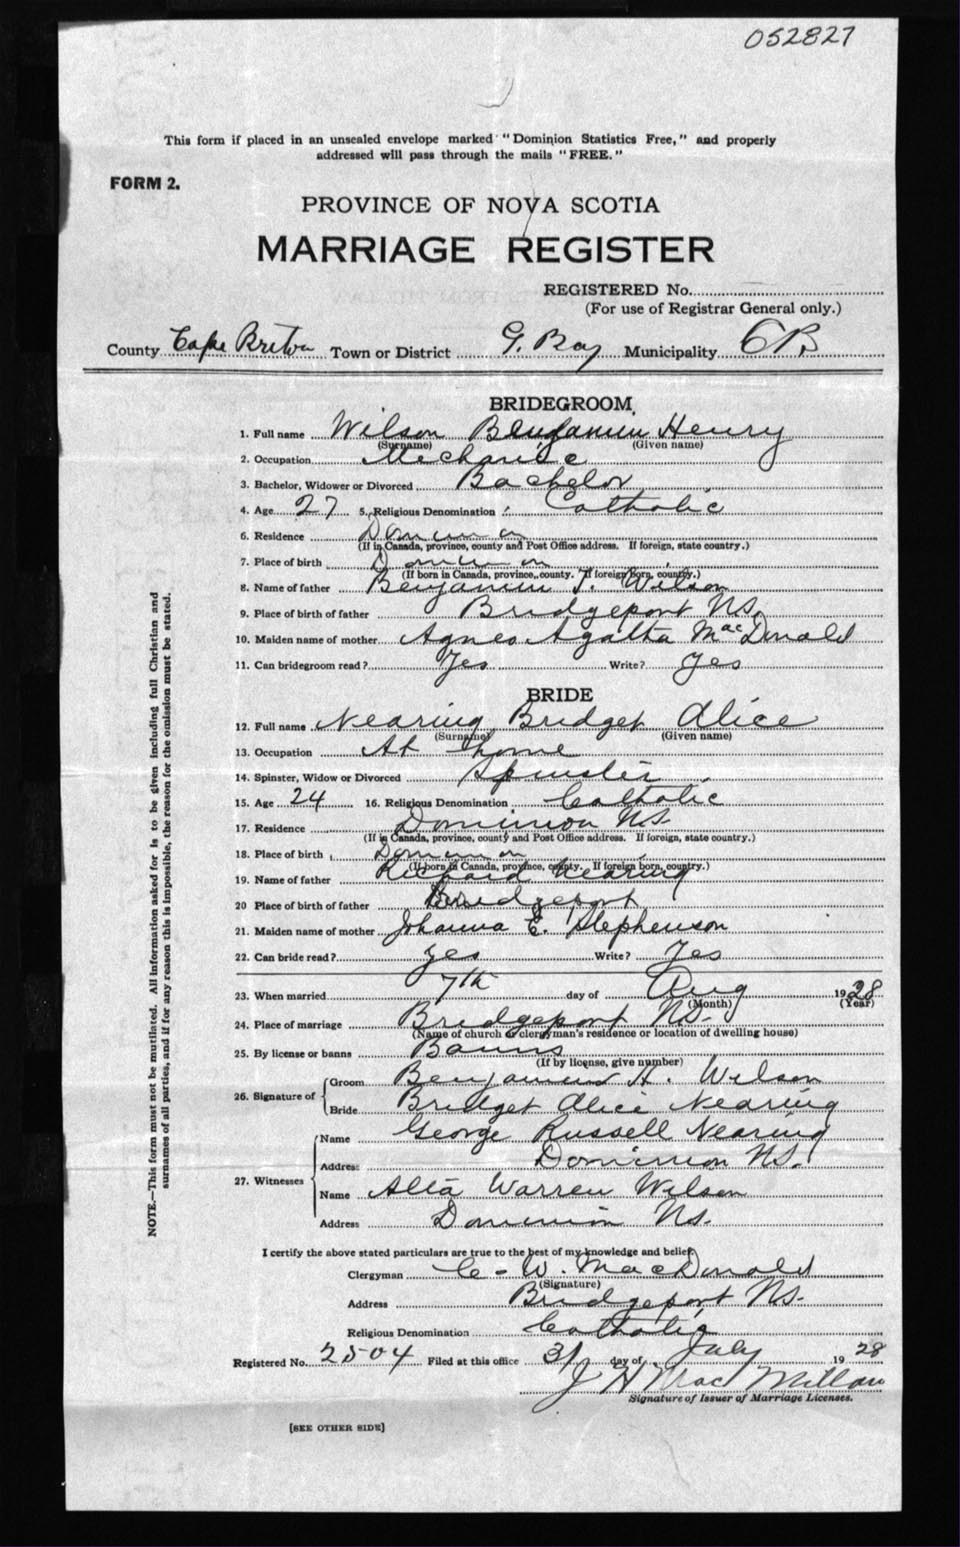 052827
This form if placed in an unsealed envelope marked "Dominion Statistics Free," and properly
addressed will pass through the mails "FREE."
FORM 2.
PROVINCE OF NOVA SCOTIA
MARRIAGE REGISTER
REGISTERED No.
(For use of Registrar General only.)
County Cape Breton Town or District G. Bay Municipality CB
BRIDEGROOM
1. Full name Wilson Benjamin Henry
(Surname) (Given name)
2. Occupation Mechanic
3. Bachelor, Widower or Divorced Bachelor
4. Age 27 5. Religious Denomination Catholic
6. Residence Dominion
(If in Canada, province, county and Post Office address. If foreign, state country.)
7. Place of birth Dominion
(If born in Canada, province, county. If foreign born, country.)
8. Name of father Benjamin T. Wilson
9. Place of birth of father Bridgeport NS.
10. Maiden name of mother Agnes Agatha MacDonald
11. Can bridegroom read? Yes Write? Yes
BRIDE
12. Full name Nearing Bridget Alice
(Surname) (Given name)
13. Occupation At home
14. Spinster, Widow or Divorced Spinster
15. Age 24 16. Religious Denomination Catholic
17. Residence Dominion NS.
(If in Canada, province, county and Post Office address. If foreign, state country.)
18. Place of birth Dominion
(If born in Canada, province, county. If foreign born, country.)
19. Name of father Richard Nearing
20 Place of birth of father Bridgeport
21. Maiden name of mother Johanna E. Stephenson
22. Can bride read? Yes Write? Yes
23. When married 7th day of Aug 1928
(Month) (Year)
24. Place of marriage Bridgeport NS.
(Name of church or clergyman's residence or location of dwelling house)
25. By license or banns Banns
(If by license, give number)
26. Signature of Groom Benjamin H. Wilson
Bride Bridget Alice Nearing
27. Witnesses Name George Russell Nearing
Address Dominion NS.
Name Alta Warren Wilson
Address Dominion NS.
I certify the above stated particulars are true to the best of my knowledge and belief.
Clergyman C. W. MacDonald
(Signature)
Address Bridgeport NS.
Religious Denomination Catholic
Registered No. 2504 Filed at this office 31 day of July 1928
J H MacMillan
Signature of Issuer of Marriage Licenses.
[SEE OTHER SIDE]
NOTE.—This form must not be mutilated. All information asked for is to be given including full Christian and
surnames of all parties, and if for any reason this is impossible, the reason for the omission must be stated.